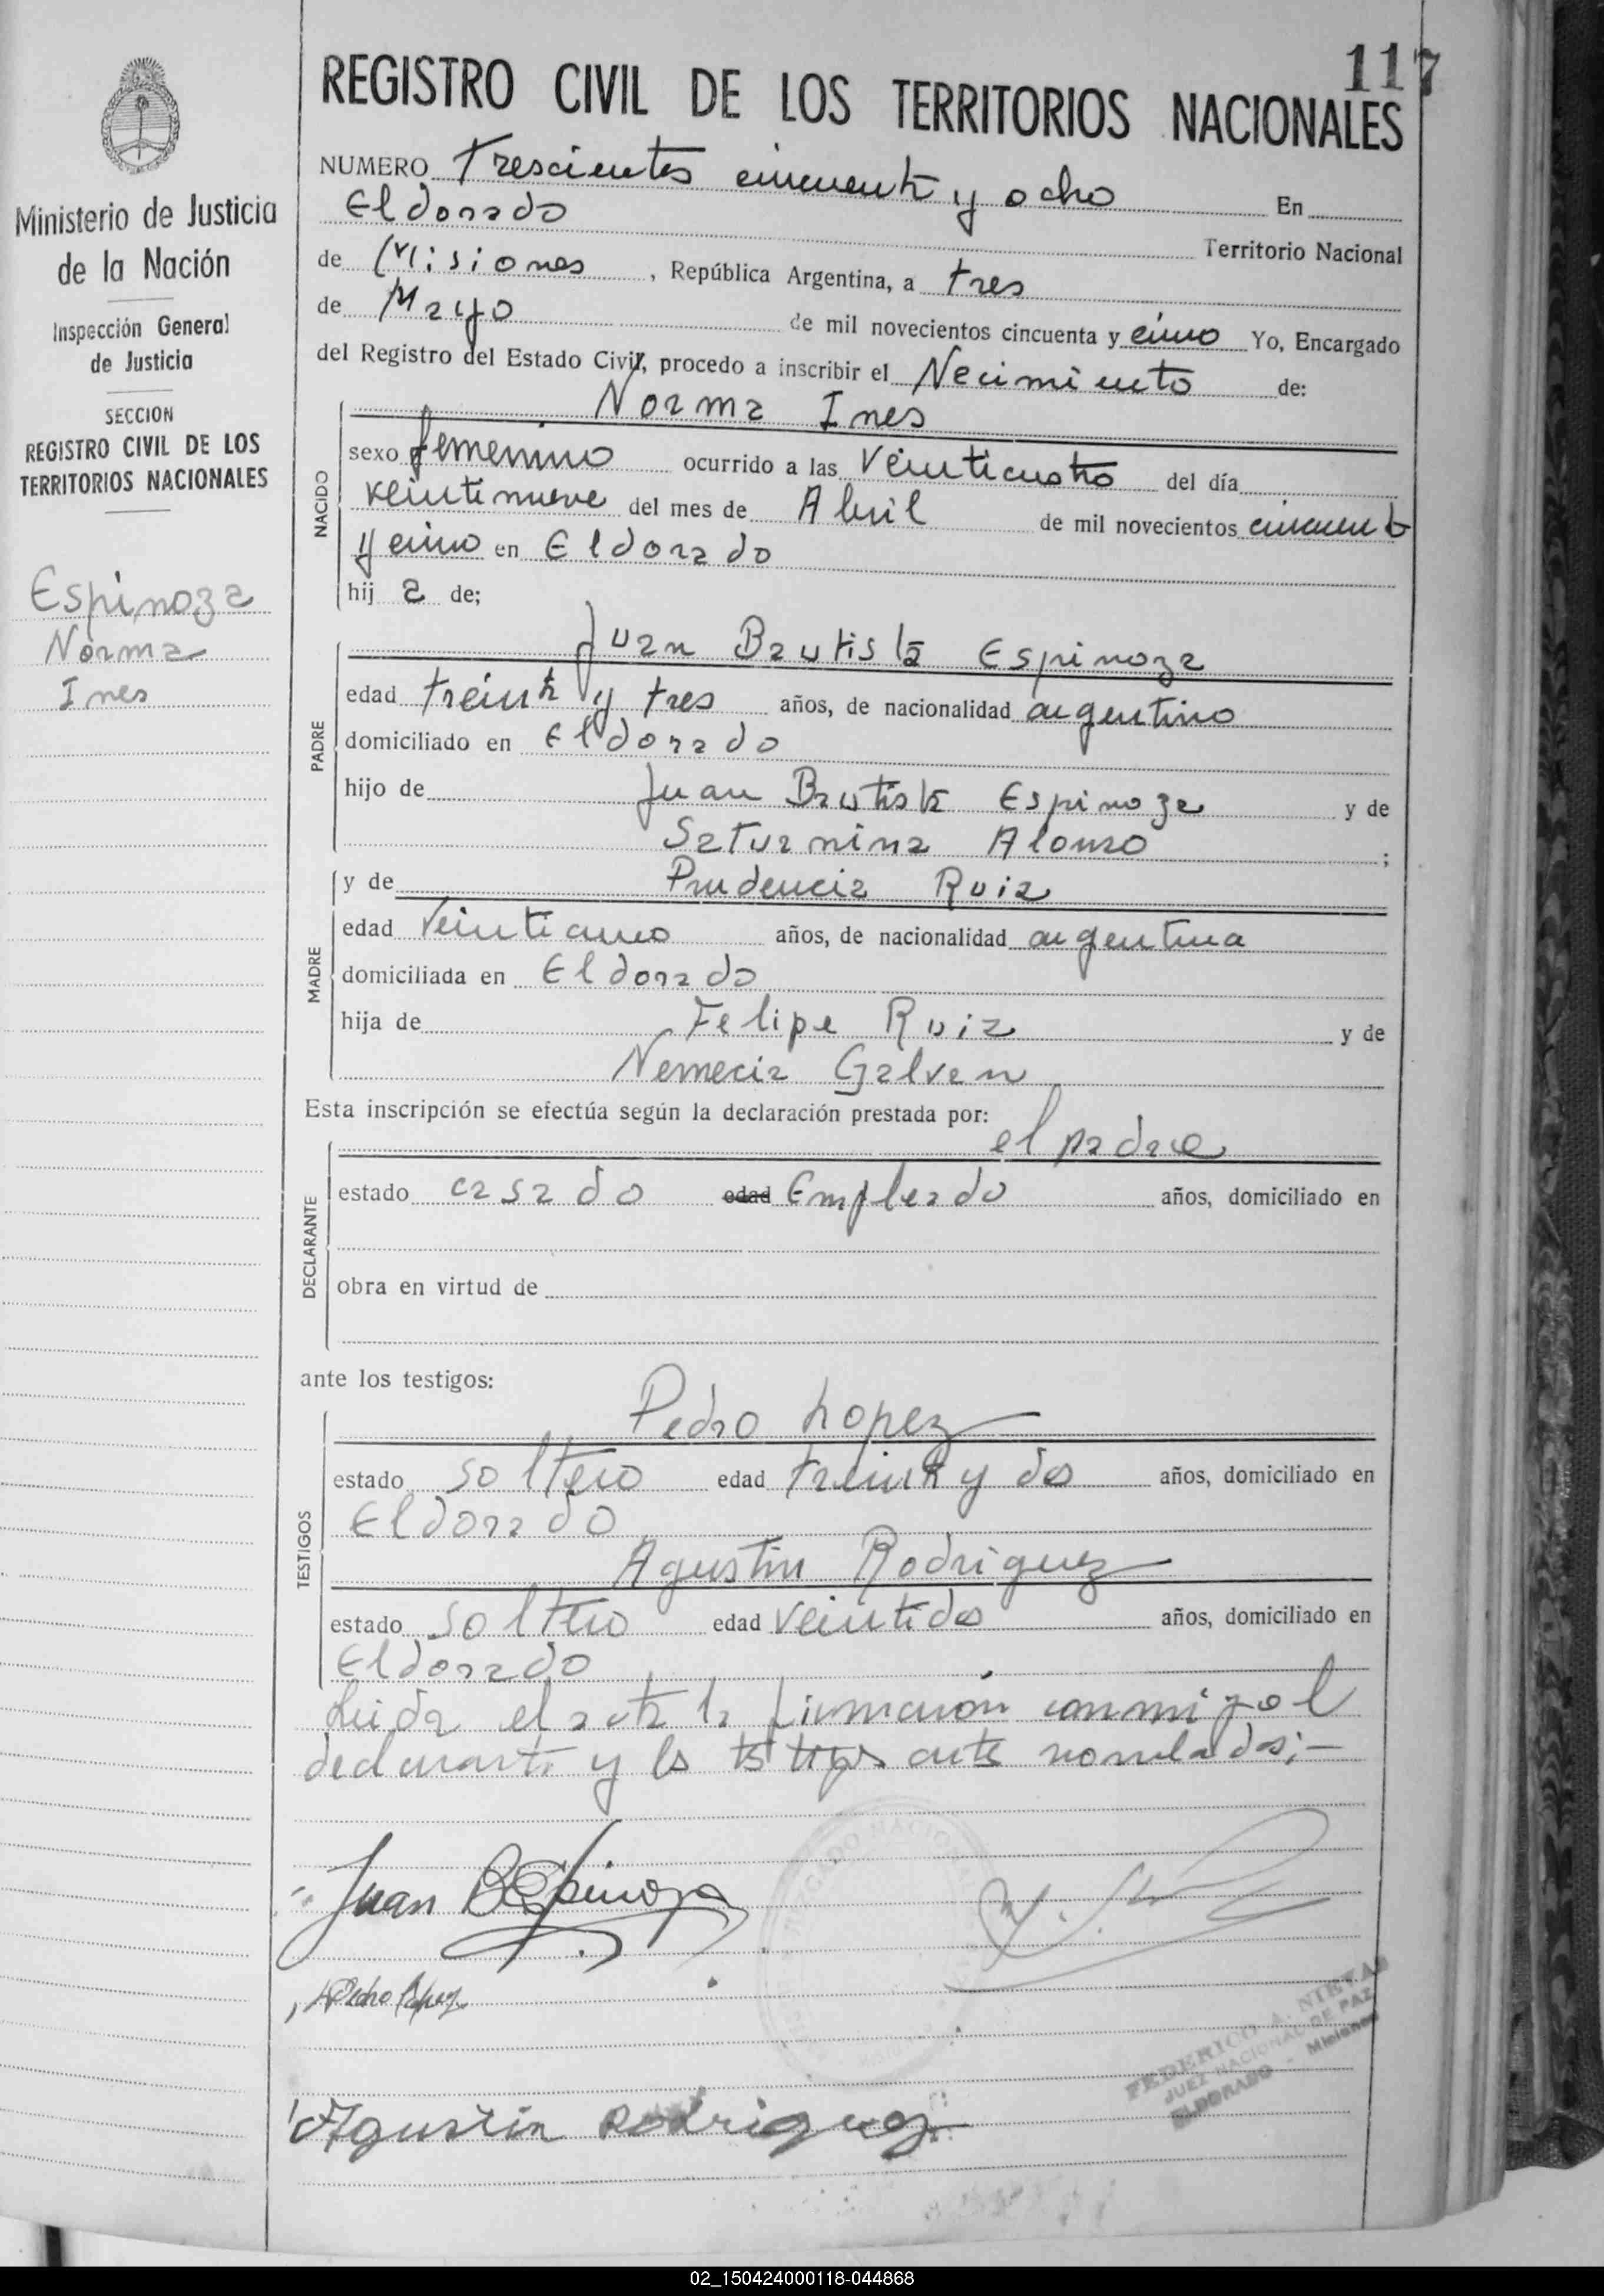 117
REGISTRO CIVIL DE LOS TERRITORIOS NACIONALES
Ministerio de Justicia
de la Nación
Inspección General
de Justicia
SECCION
REGISTRO CIVIL DE LOS
TERRITORIOS NACIONALES
Espinoza
Norma
Ines
NUMERO Trescientos cincuenta y ocho En
Eldorado Territorio Nacional
de Misiones, República Argentina, a tres
de Mayo de mil novecientos cincuenta y cinco Yo, Encargado
del Registro del Estado Civil, procedo a inscribir el Necimiento de:
NACIDO
Norma Ines
sexo femenino ocurrido a las Veinticuatro del día
veintinueve del mes de Abril de mil novecientos cincuenta
y cinco en Eldorado
hij a de;
PADRE
Juan Bautista Espinoza
edad treinta y tres años, de nacionalidad argentino
domiciliado en Eldorado
hijo de Juan Bautista Espinoza y de
Saturnina Alonso ;
MADRE
y de Prudencia Ruiz
edad Veinticinco años, de nacionalidad argentina
domiciliada en Eldorado
hija de Felipe Ruiz y de
Nemecia Galvan
Esta inscripción se efectúa según la declaración prestada por:
DECLARANTE
el padre
estado casado edad Empleado años, domiciliado en
obra en virtud de
ante los testigos:
TESTIGOS
Pedro Lopez
estado soltero edad treinta y dos años, domiciliado en
Eldorado
Agustin Rodriguez
estado soltero edad veintidos años, domiciliado en
Eldorado
Leida el acta la firmaron conmigo el
declarante y los testigos ante nombrados;-
Juan B Espinoza
Pedro Lopez
Agustin Rodriguez
FEDERICO A. NIETAS
JUEZ NACIONAL DE PAZ
ELDORADO - Misiones
02_150424000118-044868